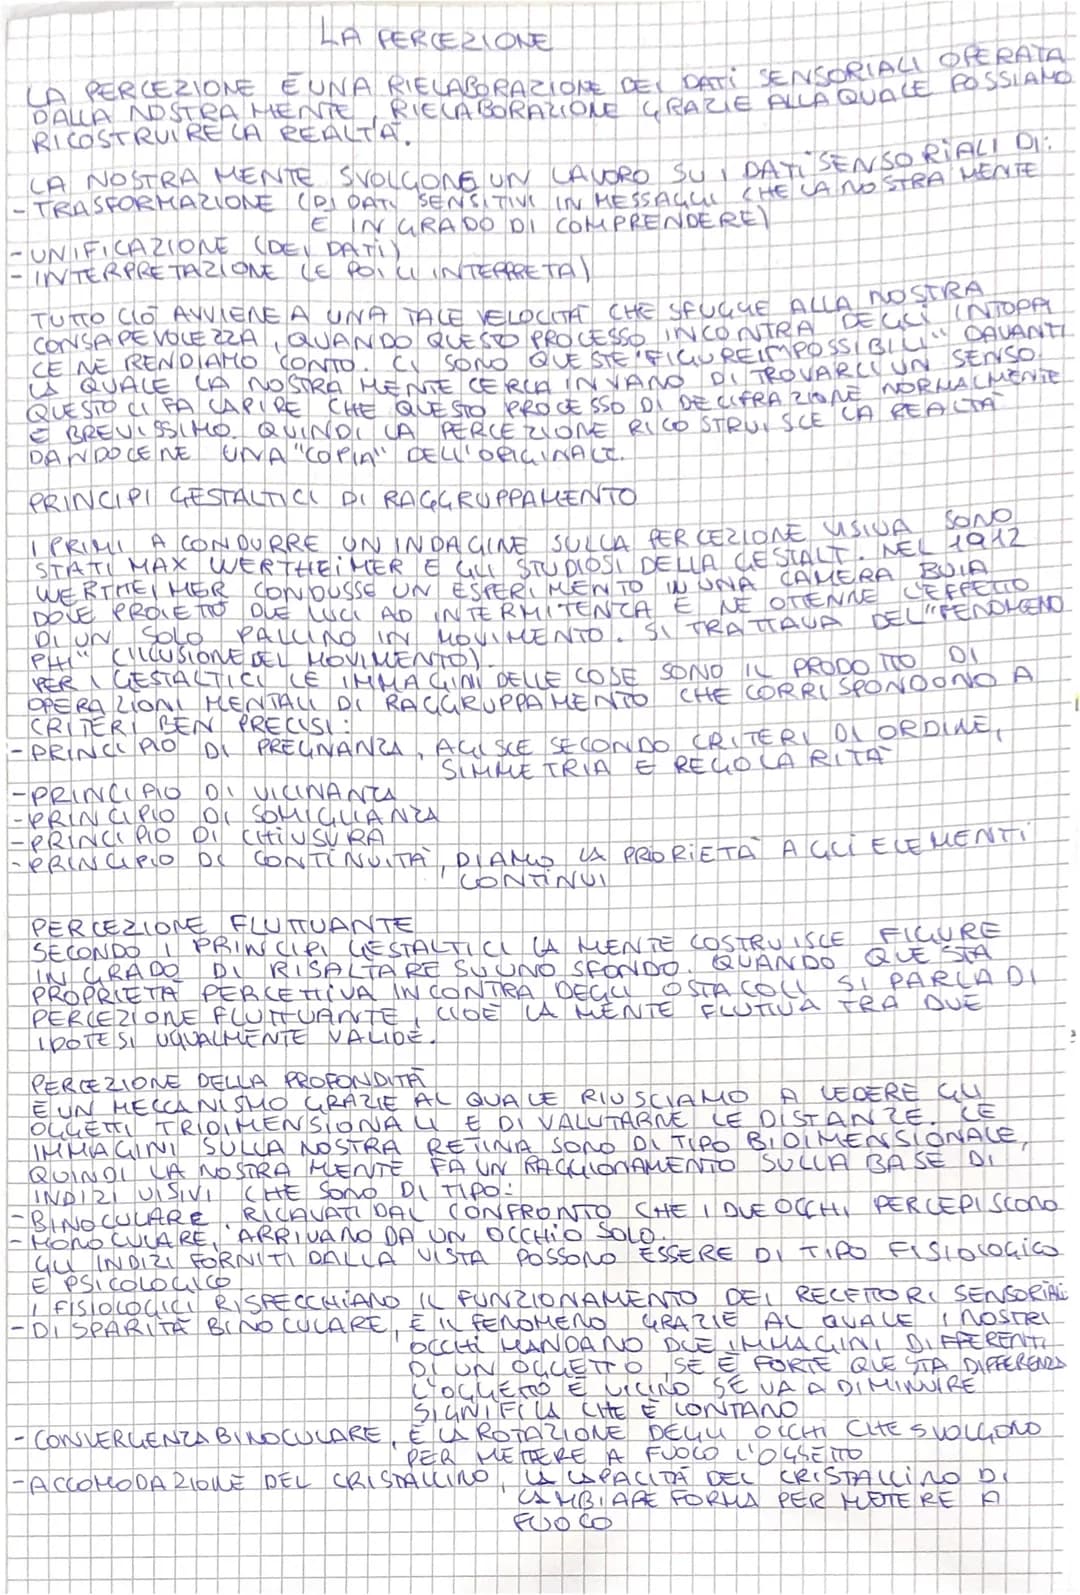 LA PERCEZIONE
LA PERCEZIONE È UNA RIELABORAZIONE DEI DATI SENSORIALI OPERATA
DALLA NOSTRA MENTE, RIELABORAZIONE GRAZIE ALLA QUALE POSSIAMO
RICOSTRUIRE LA REALTÀ.
LA NOSTRA MENTE SVOLGONE UN LAVORO SU I DATI SENSORIALI DI:
- TRASFORMAZIONE (DI DATI SENSITIVI IN MESSAGGI CHE LA NOSTRA MENTE
È IN GRADO DI COMPRENDERE)
- UNIFICAZIONE (DEI DATI)
- INTERPRETAZIONE (E POI LI INTERPRETA)
TUTTO CIÒ AVVIENE A UNA TALE VELOCITÀ CHE SFUGGE ALLA NOSTRA
CONSAPEVOLEZZA, QUANDO QUESTO PROCESSO INCONTRA DEGLI INTOPPI
CE NE RENDIAMO CONTO. CI SONO QUESTE "FIGURE IMPOSSIBILI" DAVANTI
LA QUALE LA NOSTRA MENTE CERCA INVANO DI TROVARCI UN SENSO.
QUESTO CI FA CAPIRE CHE QUESTO PROCESSO DI DECIFRAZIONE NORMALMENTE
È BREVISSIMO. QUINDI LA PERCEZIONE RICOSTRUISCE LA REALTÀ
DANDOCENE UNA "COPIA" DELL'ORIGINALE.
PRINCIPI GESTALTICI DI RAGGRUPPAMENTO
I PRIMI A CONDURRE UN INDAGINE SULLA PERCEZIONE VISIVA SONO
STATI MAX WERTHEIMER E GLI STUDIOSI DELLA GESTALT. NEL 1912
WERTHEIMER CONDUSSE UN ESPERIMENTO IN UNA CAMERA BUIA
DOVE PROIETTÒ DUE LUCI AD INTERMITENZA E NE OTTENNE L'EFFETTO
DI UN SOLO PALLINO IN MOVIMENTO. SI TRATTAVA DEL "FENOMENO
PHI" (ILLUSIONE DEL MOVIMENTO).
PER I GESTALTICI LE IMMAGINI DELLE COSE SONO IL PRODOTTO DI
OPERAZIONI MENTALI DI RAGGRUPPAMENTO CHE CORRISPONDONO A
CRITERI BEN PRECISI:
- PRINCIPIO DI PREGNANZA, AGISCE SECONDO CRITERI DI ORDINE,
SIMMETRIA E REGOLARITÀ
- PRINCIPIO DI VICINANZA
- PRINCIPIO DI SOMIGLIANZA
- PRINCIPIO DI CHIUSURA
- PRINCIPIO DI CONTINUITÀ, DIAMO LA PRIORIETÀ AGLI ELEMENTI
CONTINUI
PERCEZIONE FLUTTUANTE
SECONDO I PRINCIPI GESTALTICI LA MENTE COSTRUISCE FIGURE
IN GRADO DI RISALTARE SU UNO SFONDO. QUANDO QUESTA
PROPRIETÀ PERCETTIVA INCONTRA DEGLI OSTACOLI SI PARLA DI
PERCEZIONE FLUTTUANTE, CIOÈ LA MENTE FLUTTUA TRA DUE
IPOTESI UGUALMENTE VALIDE.
PERCEZIONE DELLA PROFONDITÀ
È UN MECCANISMO GRAZIE AL QUALE RIUSCIAMO A VEDERE GLI
OGGETTI TRIDIMENSIONALI E DI VALUTARNE LE DISTANZE. LE
IMMAGINI SULLA NOSTRA RETINA SONO DI TIPO BIDIMENSIONALE,
QUINDI LA NOSTRA MENTE FA UN RAGGIONAMENTO SULLA BASE DI
INDIZI VISIVI CHE SONO DI TIPO:
- BINOCULARE, RICAVATI DAL CONFRONTO CHE I DUE OCCHI PERCEPISCONO
- MONOCULARE, ARRIVANO DA UN OCCHIO SOLO.
GLI INDIZI FORNITI DALLA VISTA POSSONO ESSERE DI TIPO FISIOLOGICO
E PSICOLOGICO
I FISIOLOGICI RISPECCHIANO IL FUNZIONAMENTO DEI RECETTORI SENSORIALI
- DISPARITÀ BINOCULARE, È IL FENOMENO GRAZIE AL QUALE I NOSTRI
OCCHI MANDANO DUE IMMAGINI DIFFERENTI
DI UN OGGETTO, SE È FORTE QUESTA DIFFERENZA
L'OGGETTO È VICINO SE VA A DIMINUIRE
SIGNIFICA CHE È LONTANO
- CONVERGENZA BINOCULARE, È LA ROTAZIONE DEGLI OCCHI CHE SVOLGONO
PER METTERE A FUOCO L'OGGETTO
- ACCOMODAZIONE DEL CRISTALLINO, LA CAPACITÀ DEL CRISTALLINO DI
CAMBIARE FORMA PER METTERE A
FUOCO